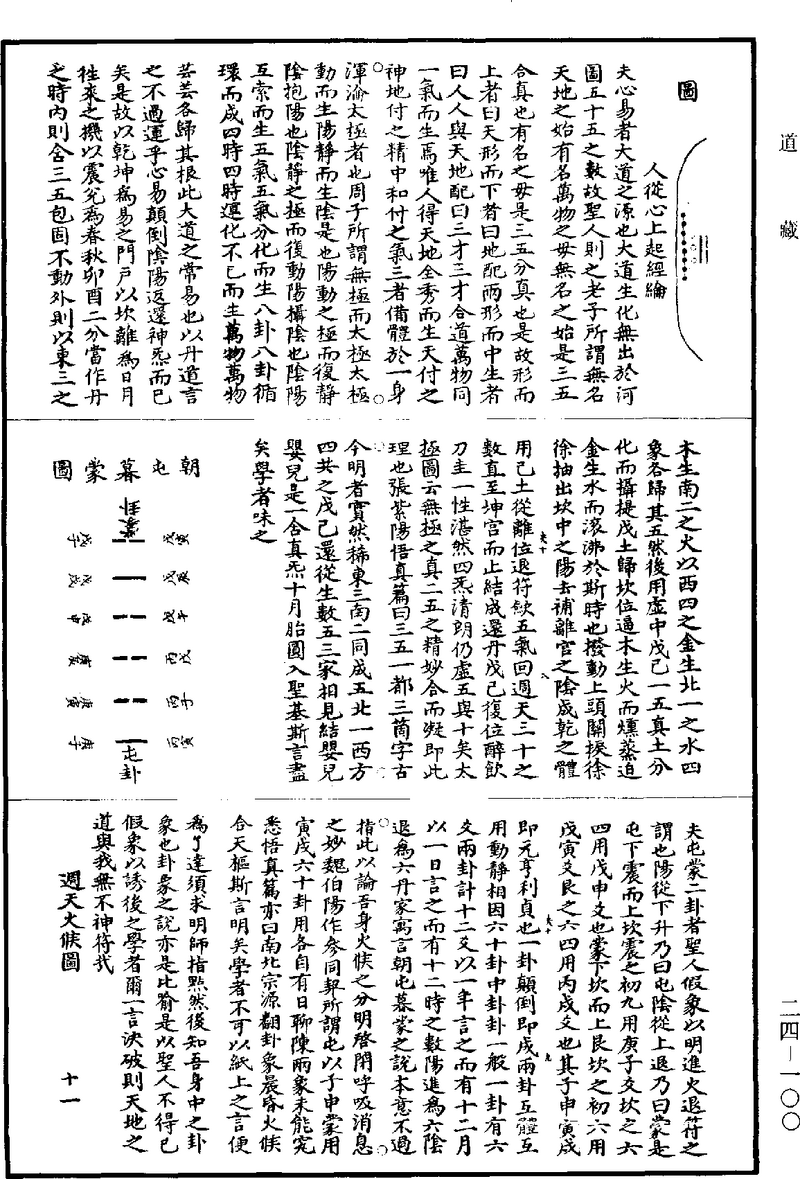 道藏
圖
人從心上起經綸
夫心易者大道之源也大道生化無出於河
圖五十五之數故聖人則之老子所謂無名
天地之始有名萬物之母無名之始是三五
合真也有名之母是三五分真也是故形而
上者曰天形而下者曰地配兩形而中生者
曰人人與天地配曰三才三才合道萬物同
一氣而生焉唯人得天地全秀而生天付之
神地付之精中和付之氣三者備體於一身
渾淪太極者也周子所謂無極而太極太極
動而生陽靜而生陰是也陽動之極而復靜
陰抱陽也陰靜之極而復動陽攝陰也陰陽
互索而生五氣五氣分化而生八卦八卦循
環而成四時四時運化不已而生萬物萬物
芸芸各歸其根此大道之常易也以丹道言
之不過運乎心易顛倒陰陽返還神炁而已
矣是故以乾坤為易之門戶以坎離為日月
徃來之機以震兌為春秋卯酉二分當作丹
之時內則含三五包固不動外則以東三之
木生南二之火以西四之金生北一之水四
象各歸其五然後用虛中戊己一五真土分
化而攝提戊土歸坎位逼木生火而燻蒸迫
金生水而滾沸於斯時也撥動上頭關捩徐
徐抽出坎中之陽去補離宮之陰成乾之體
用己土從離位退符歛五氣回週天三十之
數直至坤宮而止結成還丹戊己復位醉飲
刀圭一性湛然四炁清朗仍虛五與十矣太
極圖云無極之真二五之精妙合而凝即此
理也張紫陽悟真篇曰三五一都三箇字古
今明者實然稀東三南二同成五北一西方
四共之戊己還從生數五三家相見結嬰兒
嬰兒是一含真炁十月胎圓入聖基斯言盡
矣學者味之
朝屯暮蒙圖
蒙卦
屯卦
夫屯蒙二卦者聖人假象以明進火退符之
謂也陽從下升乃曰屯陰從上退乃曰蒙是
屯下震而上坎震之初九用庚子爻坎之六
四用戊申爻也蒙下坎而上艮坎之初六用
戊寅爻艮之六四用丙戌爻也其子申寅戌
即元亨利貞也一卦顛倒即成兩卦互體互
用動靜相因六十卦中卦卦一般一卦有六
爻兩卦計十二爻以一年言之而有十二月
以一日言之而有十二時之數陽進為六陰
退為六丹家寓言朝屯暮蒙之說本意不過
指此以論吾身火候之分明啓閉呼吸消息
之妙魏伯陽作參同契所謂屯以子申蒙用
寅戌六十卦用各自有日聊陳兩象未能究
悉悟真篇亦曰南北宗源翻卦象晨昏火候
合天樞斯言明矣學者不可以紙上之言便
為了達須求明師指㸃然後知吾身中之卦
象也卦象之說亦是比喻是以聖人不得已
假象以誘後之學者爾一言決破則天地之
道與我無不神符哉
週天火候圖
十一
二四—一〇〇